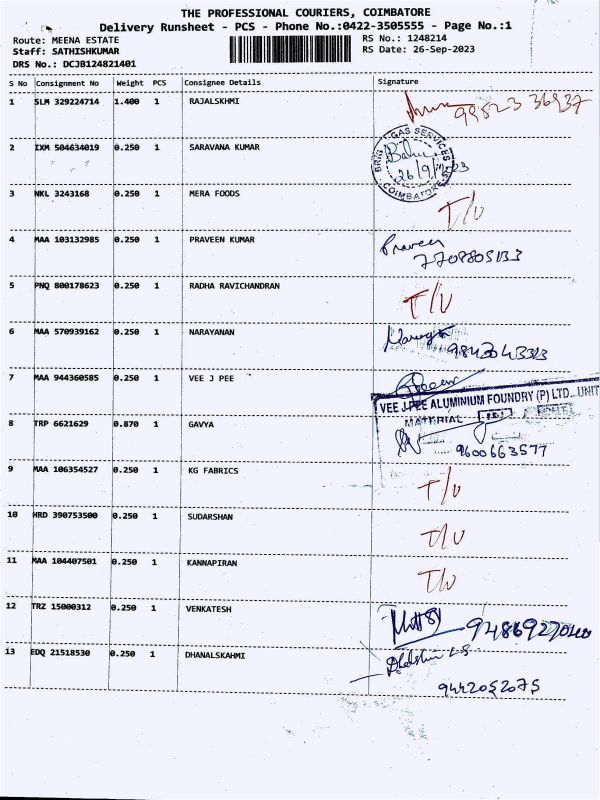 THE PROFESSIONAL COURIERS, COIMBATORE
Delivery Runsheet - PCS - Phone No.:0422-3505555 - Page No.:1
Route: MEENA ESTATE RS No.: 1248214
Staff: SATHISHKUMAR RS Date: 26-Sep-2023
DRS No.: DCJB124821401
S No Consignment No Weight PCS Consignee Details Signature
1 SLM 329224714 1.400 1 RAJALSKHMI 99523 36937
2 IXM 504634019 0.250 1 SARAVANA KUMAR
BRIG GAS SERVICES
Babu
26/9/23
COIMBATORE
3 NKL 3243168 0.250 1 MERA FOODS T/U
4 MAA 103132985 0.250 1 PRAVEEN KUMAR Praveen
7708805133
5 PNQ 800178623 0.250 1 RADHA RAVICHANDRAN T/U
6 MAA 570939162 0.250 1 NARAYANAN
9843043323
7 MAA 944360585 0.250 1 VEE J PEE
VEE J.PEE ALUMINIUM FOUNDRY (P) LTD., UNIT
MATERIAL
8 TRP 6621629 0.870 1 GAVYA
9600663577
9 MAA 106354527 0.250 1 KG FABRICS T/U
10 HRD 390753500 0.250 1 SUDARSHAN T/U
11 MAA 104407501 0.250 1 KANNAPIRAN T/U
12 TRZ 15000312 0.250 1 VENKATESH
13 EDQ 21518530 0.250 1 DHANALSKAHMI
9442052075